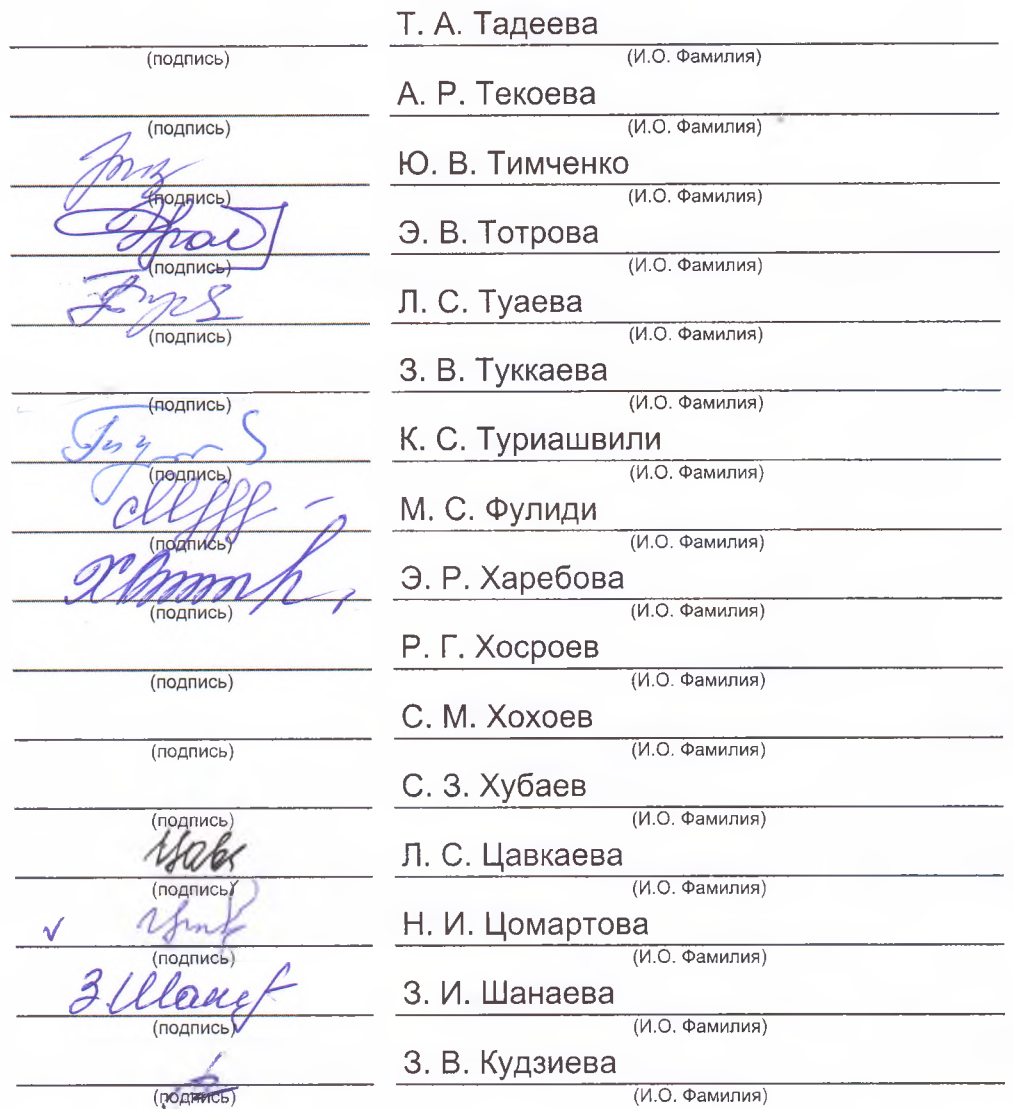 Т. А. Тадеева
(подпись) (И.О. Фамилия)
А. Р. Текоева
(подпись) (И.О. Фамилия)
Ю. В. Тимченко
(подпись) (И.О. Фамилия)
Э. В. Тотрова
(подпись) (И.О. Фамилия)
Л. С. Туаева
(подпись) (И.О. Фамилия)
З. В. Туккаева
(подпись) (И.О. Фамилия)
К. С. Туриашвили
(подпись) (И.О. Фамилия)
М. С. Фулиди
(подпись) (И.О. Фамилия)
Э. Р. Харебова
(подпись) (И.О. Фамилия)
Р. Г. Хосроев
(подпись) (И.О. Фамилия)
С. М. Хохоев
(подпись) (И.О. Фамилия)
С. З. Хубаев
(подпись) (И.О. Фамилия)
Л. С. Цавкаева
(подпись) (И.О. Фамилия)
Н. И. Цомартова
(подпись) (И.О. Фамилия)
З. И. Шанаева
(подпись) (И.О. Фамилия)
З. В. Кудзиева
(подпись) (И.О. Фамилия)